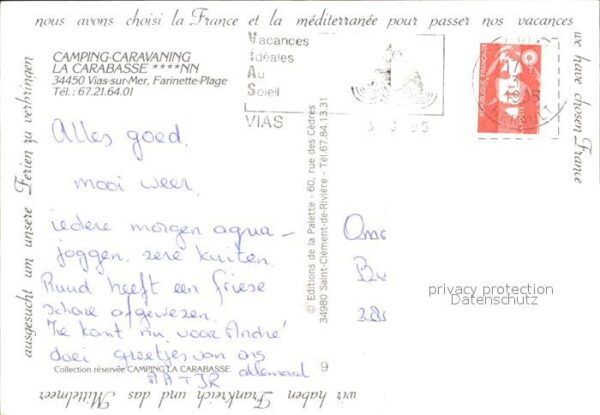 nous avons choisi la France et la méditerranée pour passer nos vacances
we have chosen France
CAMPING-CARAVANING
LA CARABASSE ****NN
34450 Vias-sur-Mer, Farinette-Plage
Tél.: 67.21.64.01
Vacances
Idéales
Au
Soleil
VIAS
95
RÉPUBLIQUE FRANÇAISE
Alles goed.
mooi weer.
iedere morgen aqua-
joggen. zere kuiten.
Ruud heeft een friese
schone afgewezen.
Ze komt nu voor André
doei groetjes van ons
allemaal
© Editions de la Palette - 60, rue des Cèdres
34980 Saint-Clément-de-Rivière - Tél. 67.84.13.31
privacy protection
Datenschutz
Collection réservée CAMPING LA CARABASSE
9
wir haben Frankreich und das Mittelmeer
ausgesucht um unsere Ferien zu verbringen